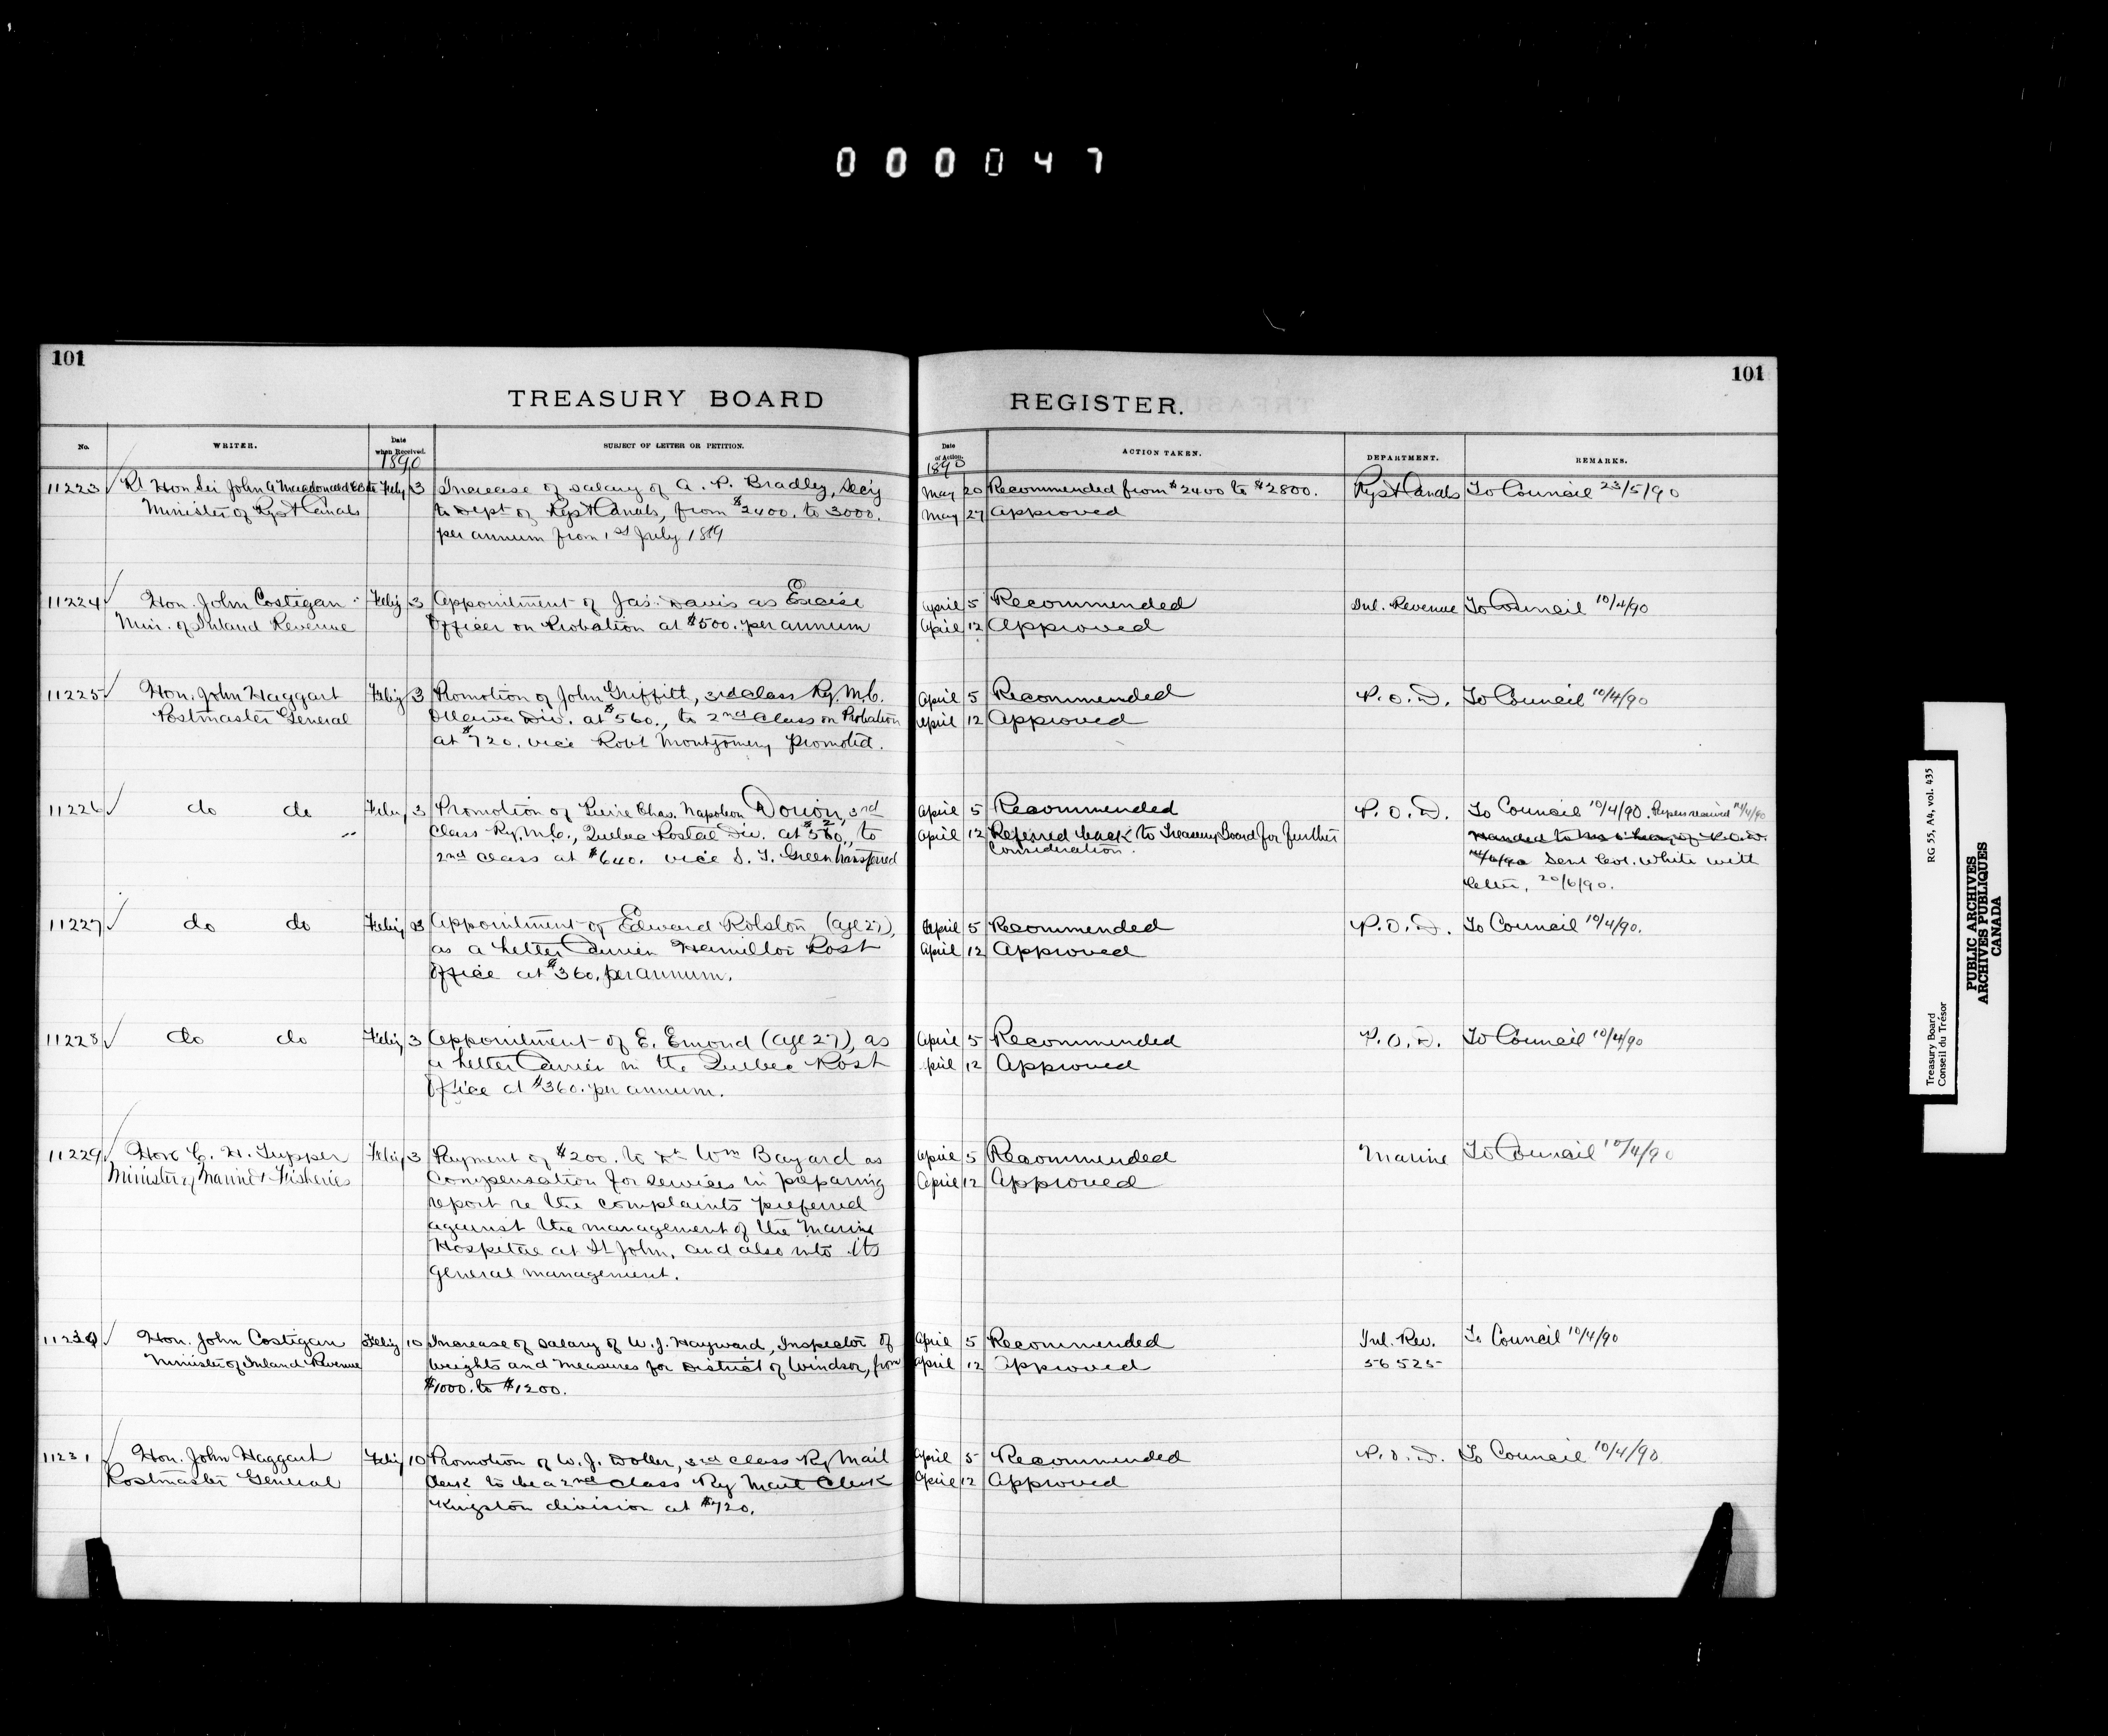 000047
101
101
TREASURY BOARD
REGISTER.
No.
WRITER.
Date when Received.
1890
SUBJECT OF LETTER OR PETITION.
Date of Action.
1890
ACTION TAKEN.
DEPARTMENT.
REMARKS.
11223 Rt Hon Sir John A Macdonald Feby 3 Increase of salary of A. P. Bradley, Sec'y May 20 Recommended from $2400 to $2800. Rys & Canals To Council 23/5/90
Minister of Rys & Canals to Dept of Rys & Canals, from $2400. to 3000. May 27 Approved
per annum from 1st July 1889
11224 Hon. John Costigan Feby 3 Appointment of Jas. Davis as Excise April 5 Recommended Inl. Revenue To Council 10/4/90
Min. of Inland Revenue Officer on Probation at $500. per annum April 12 Approved
11225 Hon. John Haggart Feby 3 Promotion of John Griffitt, 3rd Class Ry. M.C. April 5 Recommended P. O. D. To Council 10/4/90
Postmaster General Ottawa Div. at $560., to 2nd Class on Probation April 12 Approved
at $720. vice Robt Montgomery promoted.
11226 do do Feby 3 Promotion of Pierre Chas. Napoleon Dorion, 3rd April 5 Recommended P. O. D. To Council 10/4/90. Papers received
Class Ry. M.C., Quebec Postal Div. at to April 12 Referred back to Treasury Board for further Handed to of P.O.D.
2nd class at $640. vice S. T. Green transferred consideration. Sent Col. White with
letter, 20/6/90.
11227 do do Feby 3 Appointment of Edward Rolston, (age 27), April 5 Recommended P. O. D. To Council 10/4/90.
as a Letter Carrier Hamilton Post April 12 Approved
Office at $360. per annum.
11228 do do Feby 3 Appointment of E. Emond (age 27), as April 5 Recommended P. O. D. To Council 10/4/90
a Letter Carrier in the Quebec Post April 12 Approved
Office at $360. per annum.
11229 Hon C. H. Tupper Feby 3 Payment of $200. to Dr Wm Bayard as April 5 Recommended Marine To Council 10/4/90
Minister of Marine & Fisheries Compensation for services in preparing April 12 Approved
report re the complaints preferred
against the management of the Marine
Hospital at St John, and also into its
general management.
11230 Hon. John Costigan Feby 10 Increase of salary of W. J. Hayward, Inspector of April 5 Recommended Inl. Rev. To Council 10/4/90
Minister of Inland Revenue Weights and Measures for District of Windsor, from April 12 Approved 56525
$1000. to $1200.
11231 Hon. John Haggart Feby 10 Promotion of W. J. Doller, 3rd class Ry Mail April 5 Recommended P. O. D. To Council 10/4/90
Postmaster General Clerk to be a 2nd class Ry Mail Clerk April 12 Approved
Kingston division at $720.
Treasury Board RG 55, A4, vol. 435
Conseil du Trésor
PUBLIC ARCHIVES
ARCHIVES PUBLIQUES
CANADA